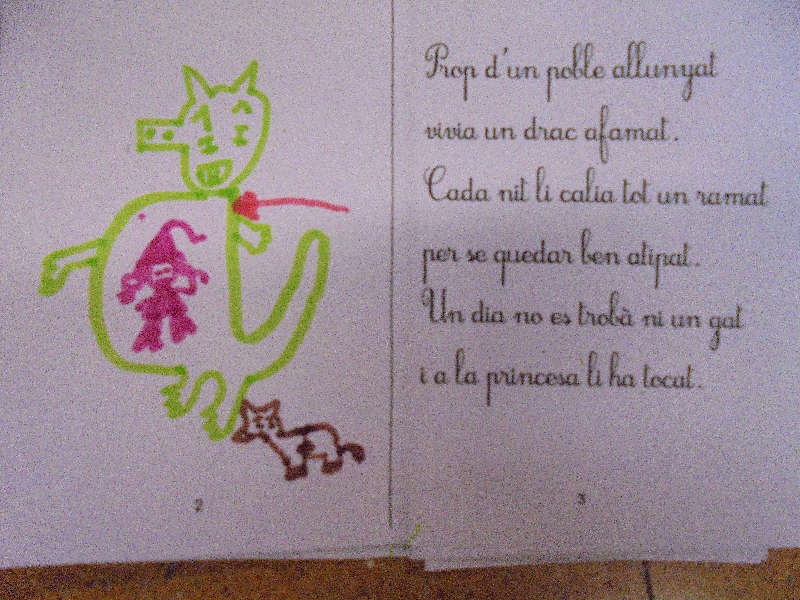 Prop d'un poble allunyat
vivia un drac afamat.
Cada nit li calia tot un ramat
per se quedar ben atipat.
Un dia no es trobà ni un gat
i a la princesa li ha tocat.
2
3